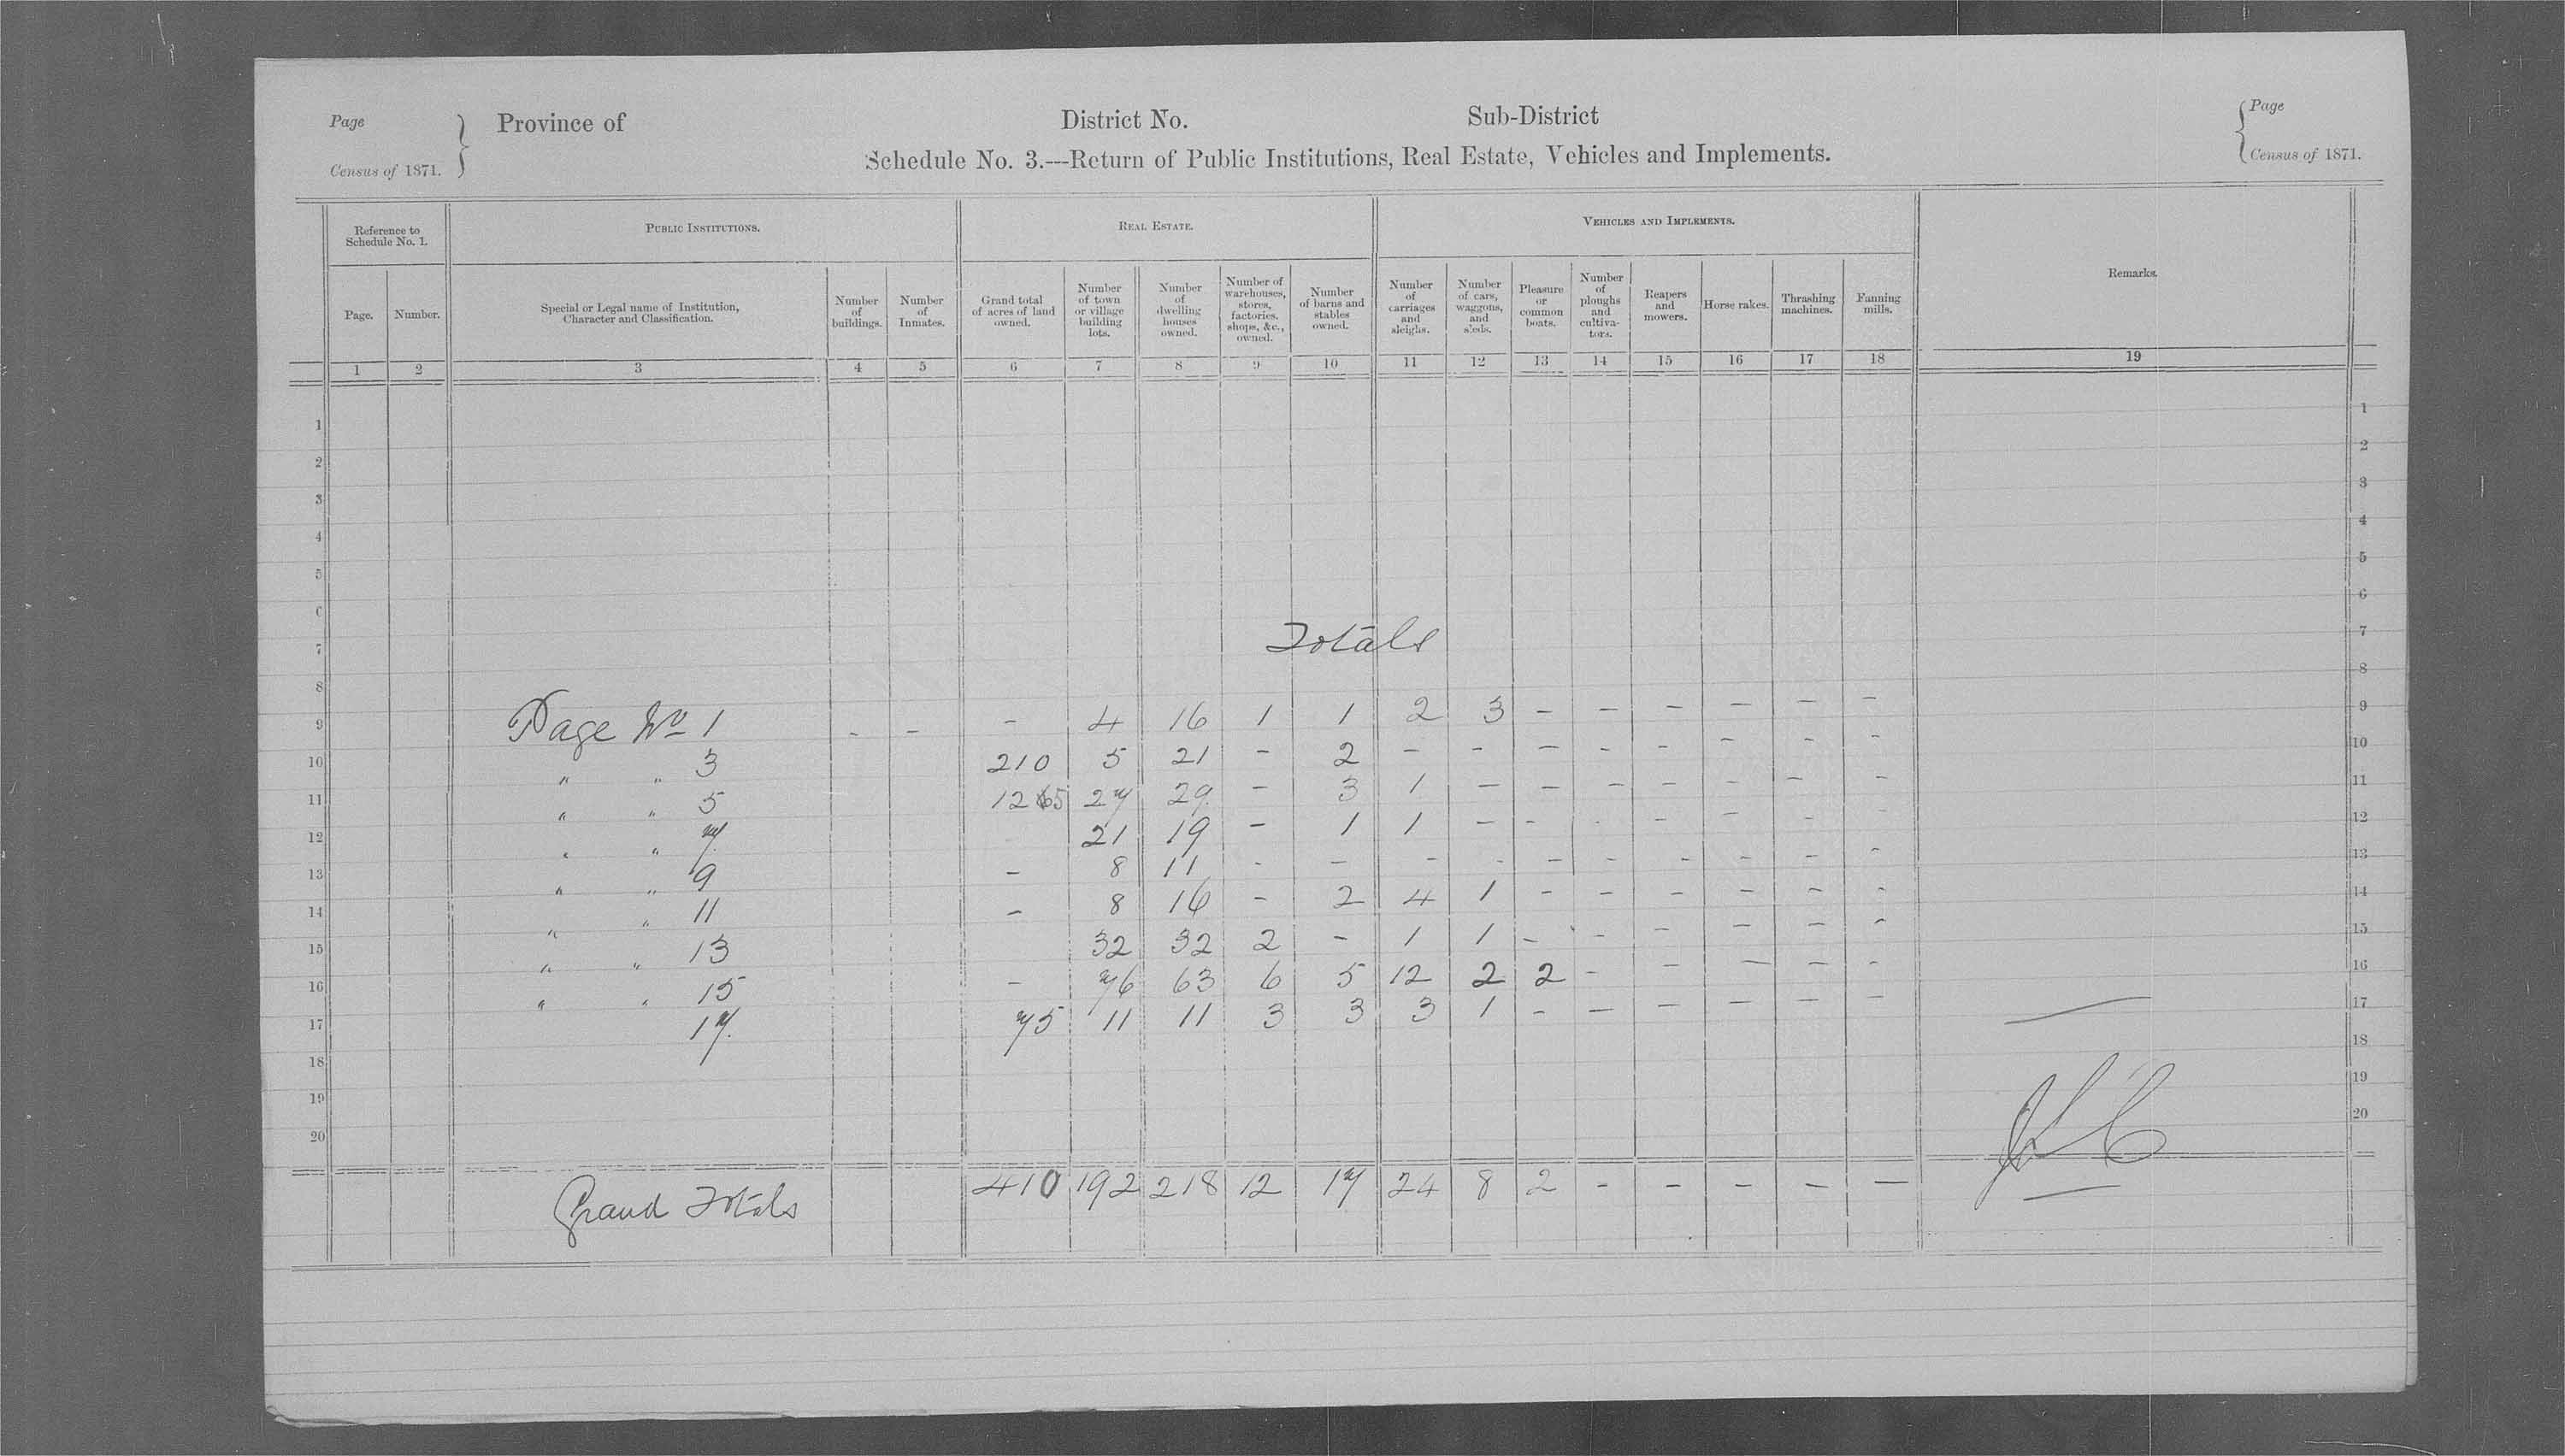 Page Province of District No. Sub-District Page
Census of 1871. Schedule No. 3.—Return of Public Institutions, Real Estate, Vehicles and Implements. Census of 1871.
Reference to Schedule No. 1. PUBLIC INSTITUTIONS. REAL ESTATE. VEHICLES AND IMPLEMENTS. Remarks.
Page. Number. Special or Legal name of Institution, Character and Classification. Number of buildings. Number of Inmates. Grand total of acres of land owned. Number of town or village building lots. Number of dwelling houses owned. Number of warehouses, stores, factories, shops, &c., owned. Number of barns and stables owned. Number of carriages and sleighs. Number of cars, waggons, and sleds. Pleasure or common boats. Number of ploughs and cultivators. Reapers and mowers. Horse rakes. Thrashing machines. Fanning mills.
1 2 3 4 5 6 7 8 9 10 11 12 13 14 15 16 17 18 19
1 1
2 2
3 3
4 4
5 5
6 6
7 Totals 7
8 8
9 Page No 1 - - - 4 16 1 1 2 3 - - - - - - 9
10 " " 3 210 5 21 - 2 - - - - - - - - 10
11 " " 5 125 27 29 - 3 1 - - - - - - - 11
12 " " 7 21 19 - 1 1 - - - - - - 12
13 " " 9 - 8 11 - - - - - - - - - - 13
14 " " 11 - 8 16 - 2 4 1 - - - - - - 14
15 " " 13 32 32 2 - 1 1 - - - - - - 15
16 " " 15 - 76 63 6 5 12 2 2 - - - - - 16
17 17 75 11 11 3 3 3 1 - - - - - - 17
18 18
19 19
20 20
Grand Totals 410 192 218 12 17 24 8 2 - - - - -